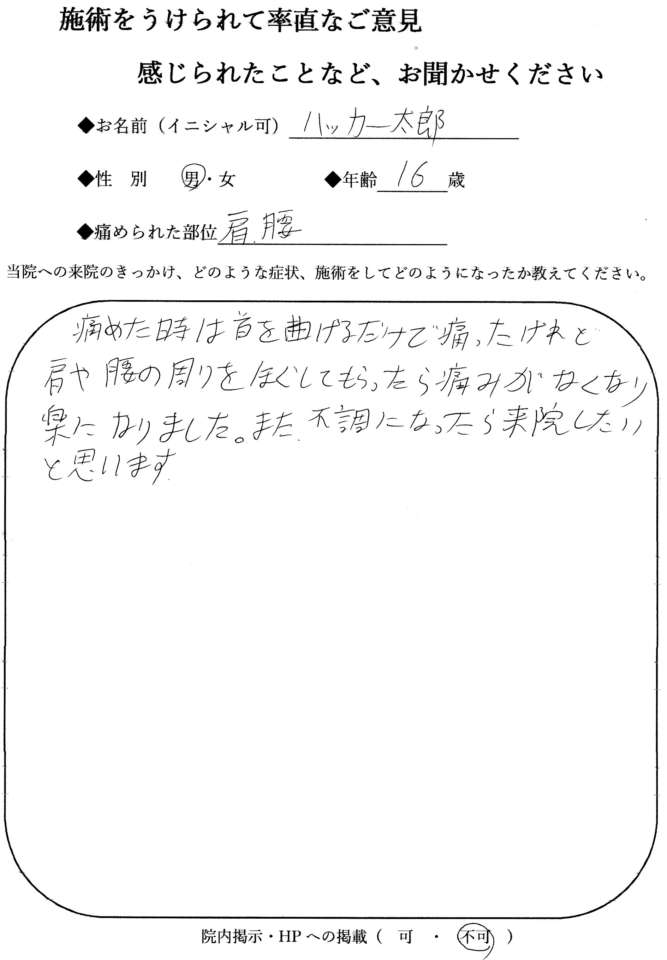 施術をうけられて率直なご意見
感じられたことなど、お聞かせください
◆お名前（イニシャル可） ハッカー太郎
◆性 別 男・女 ◆年齢 16 歳
◆痛められた部位 肩、腰
当院への来院のきっかけ、どのような症状、施術をしてどのようになったか教えてください。
痛めた時は首を曲げるだけで痛ったけれど
肩や腰の周りをほぐしてもらったら痛みがなくなり
楽になりました。また、不調になったら来院したい
と思います
院内掲示・HPへの掲載（ 可 ・ 不可 ）